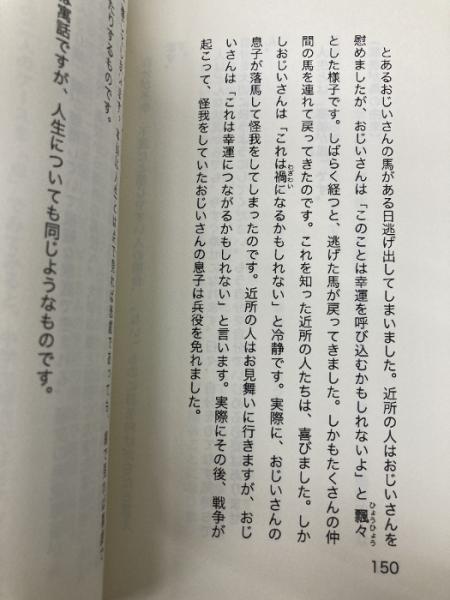 とあるおじいさんの馬がある日逃げ出してしまいました。近所の人はおじいさんを
慰めましたが、おじいさんは「このことは幸運を呼び込むかもしれないよ」と飄々
ひょうひょう
とした様子です。しばらく経つと、逃げた馬が戻ってきました。しかもたくさんの仲
間の馬を連れて戻ってきたのです。これを知った近所の人たちは、喜びました。しか
しおじいさんは「これは禍になるかもしれない」と冷静です。実際に、おじいさんの
わざわい
息子が落馬して怪我をしてしまったのです。近所の人はお見舞いに行きますが、おじ
いさんは「これは幸運につながるかもしれない」と言います。実際にその後、戦争が
起こって、怪我をしていたおじいさんの息子は兵役を免れました。
150
寓話ですが、人生についても同じようなものです。
するものです。